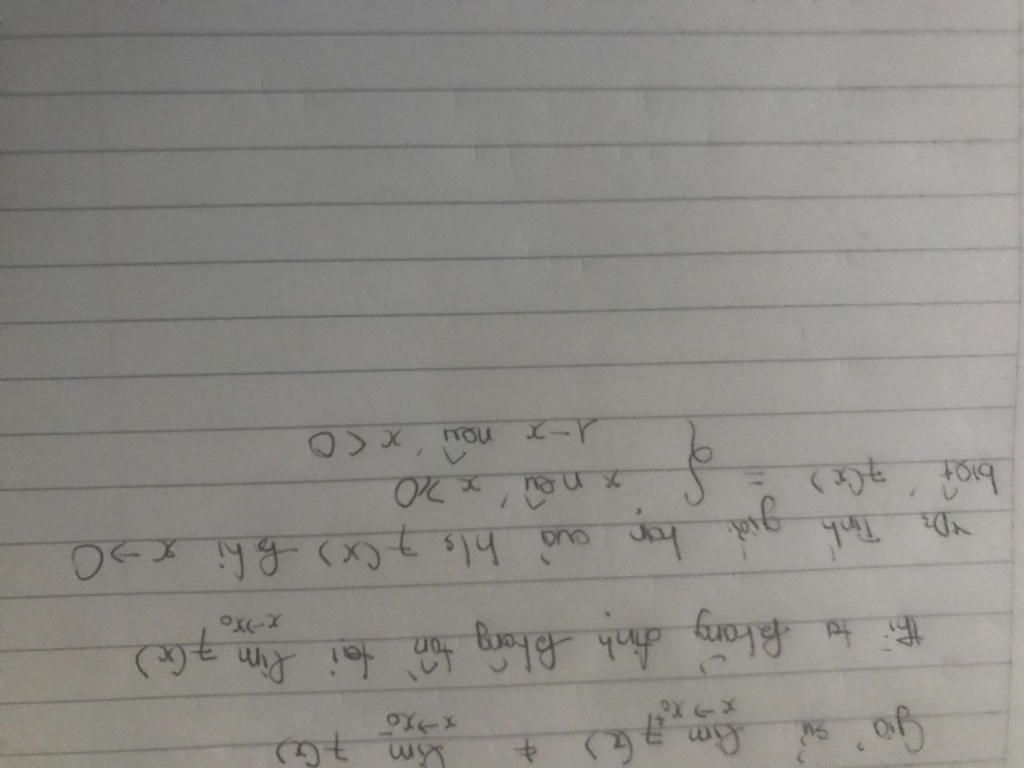 Giả sử lim f(x) ≠ lim f(x)
x→x₀⁺ x→x₀⁻
thì ta khẳng định không tồn tại lim f(x)
x→x₀
VD: Tính giới hạn của h/s f(x) khi x→0
biết f(x) = { x nếu x ≥ 0
1-x nếu x < 0